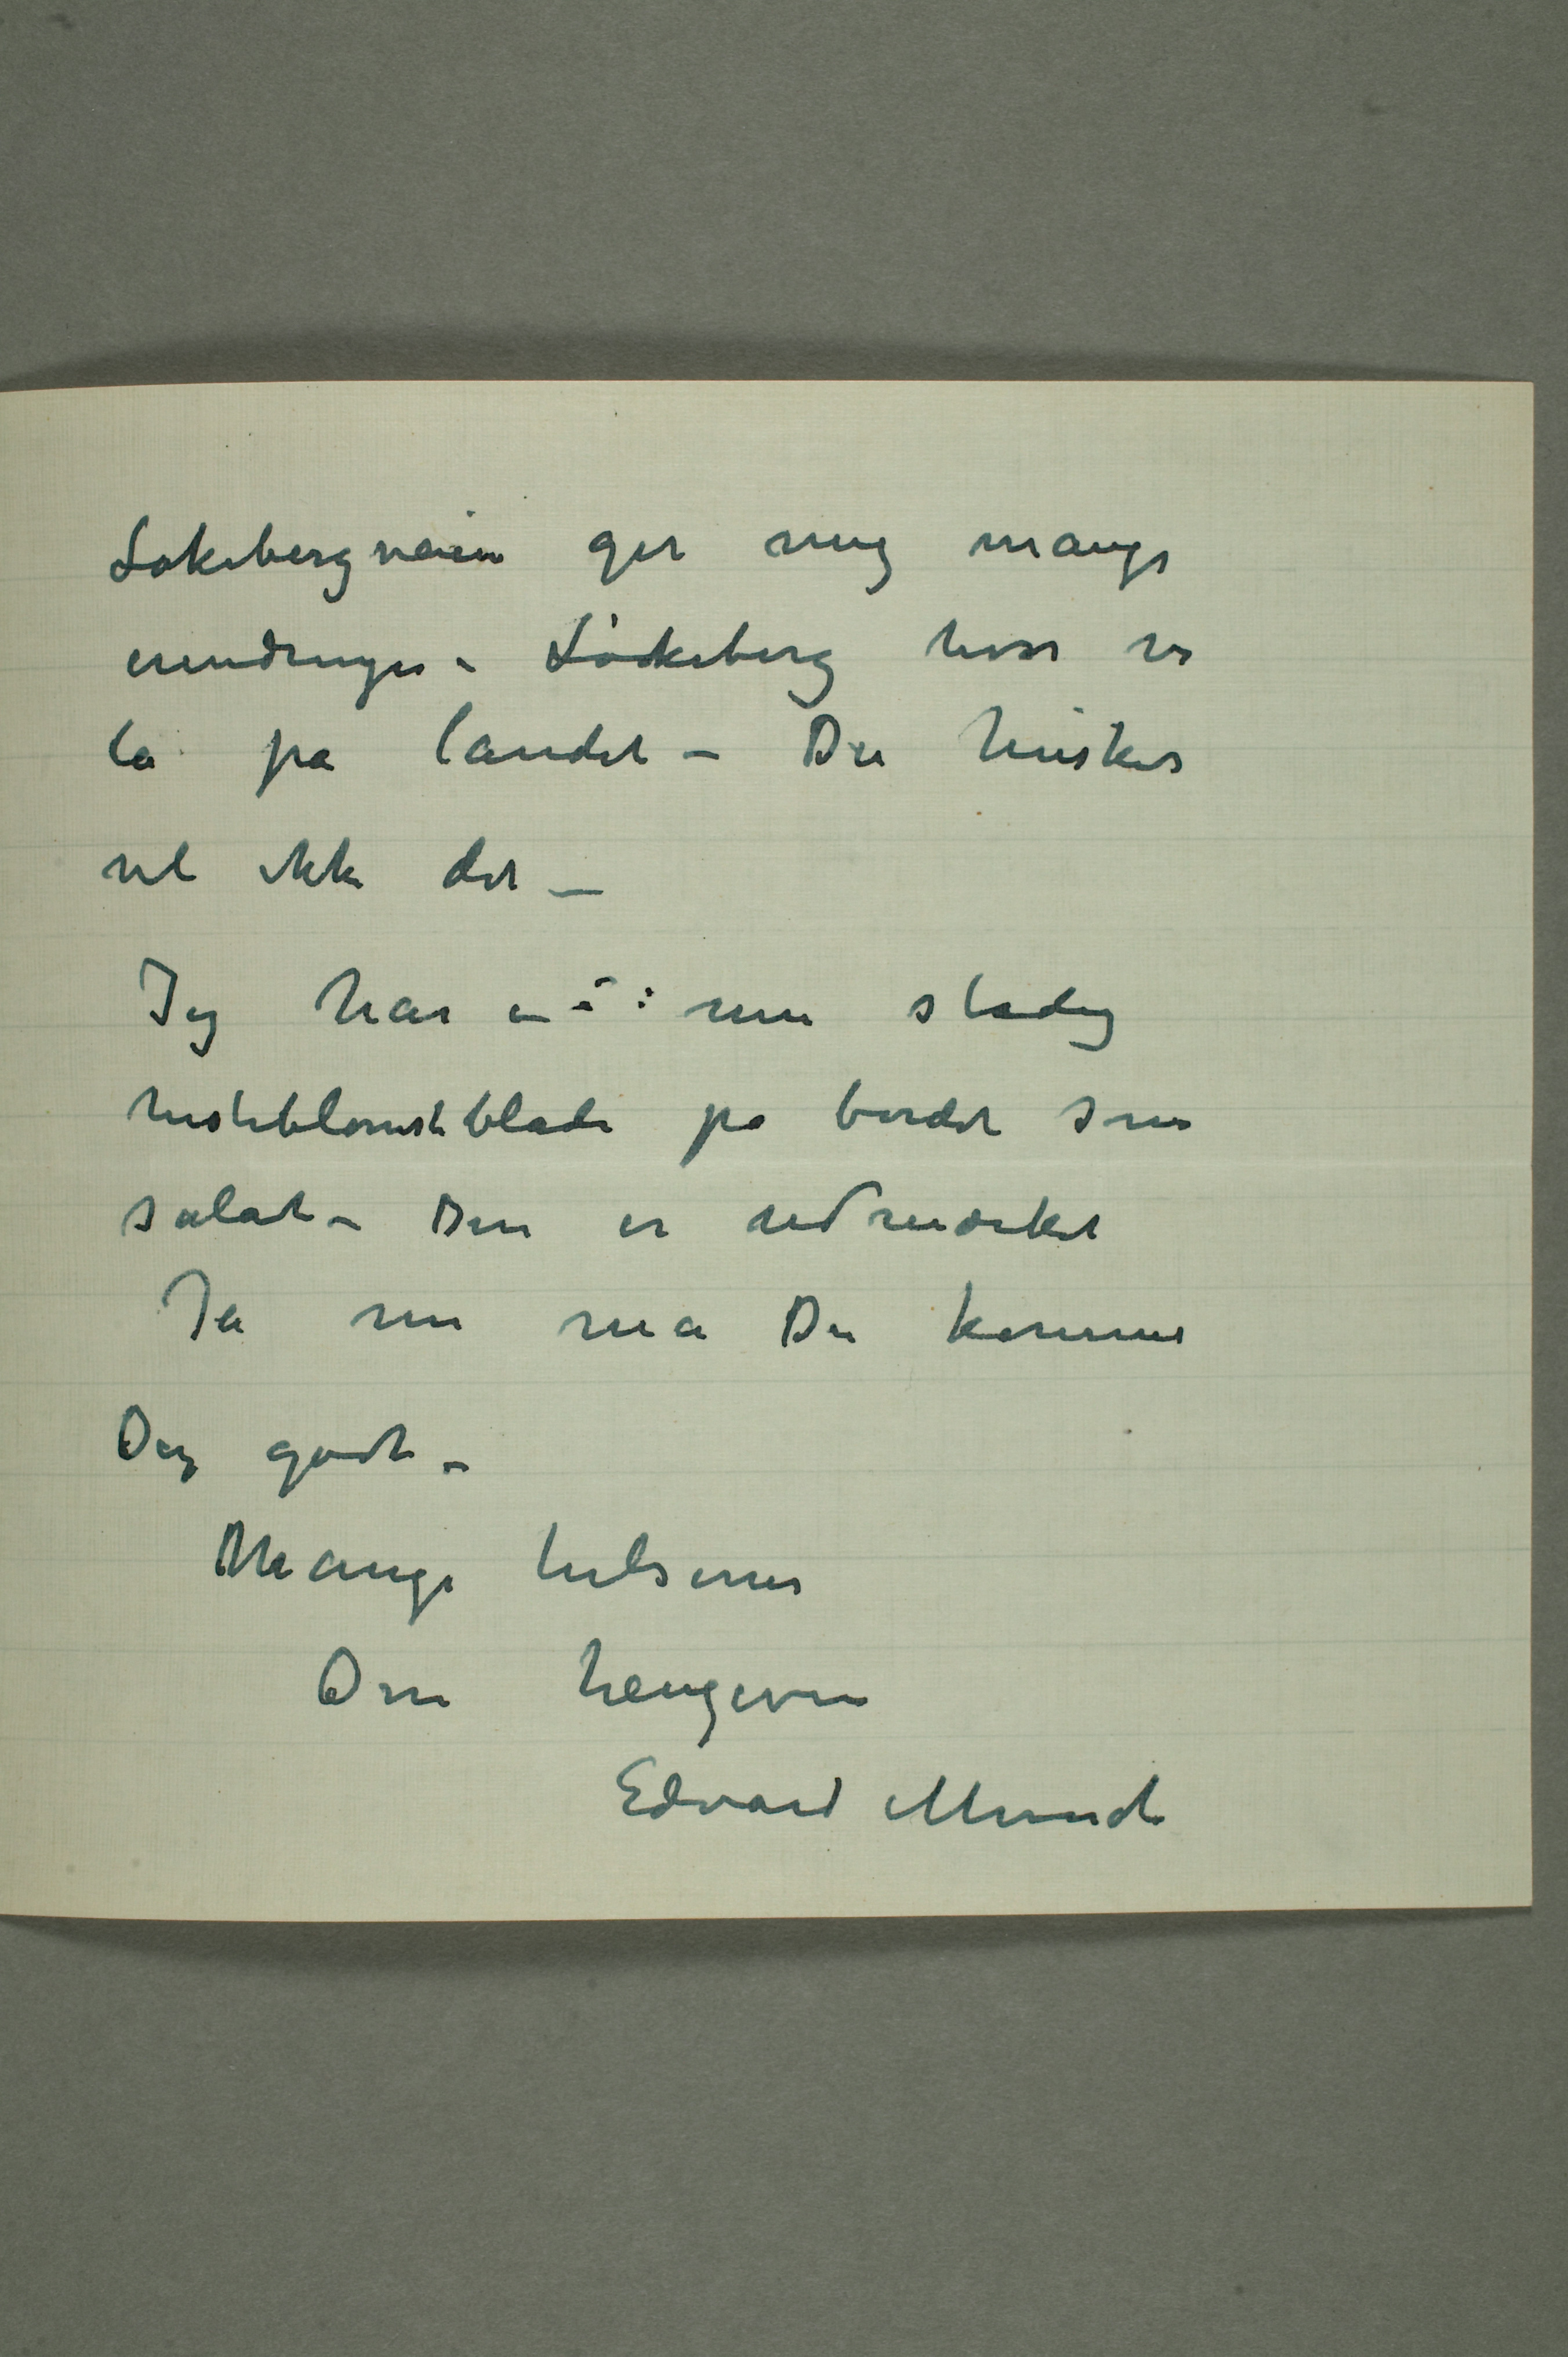 Løkebergveien gir mig mange
erindringer – Løkeberg hvor vi
lå på landet – Du husker
vel ikke det –
Jeg har nu stadig
hesteblomstblade på bordet som
salat – Den er udmærket
Ja nu må Du komme
Dig godt –
Mange hilsener
Din hengivne
Edvard Munch